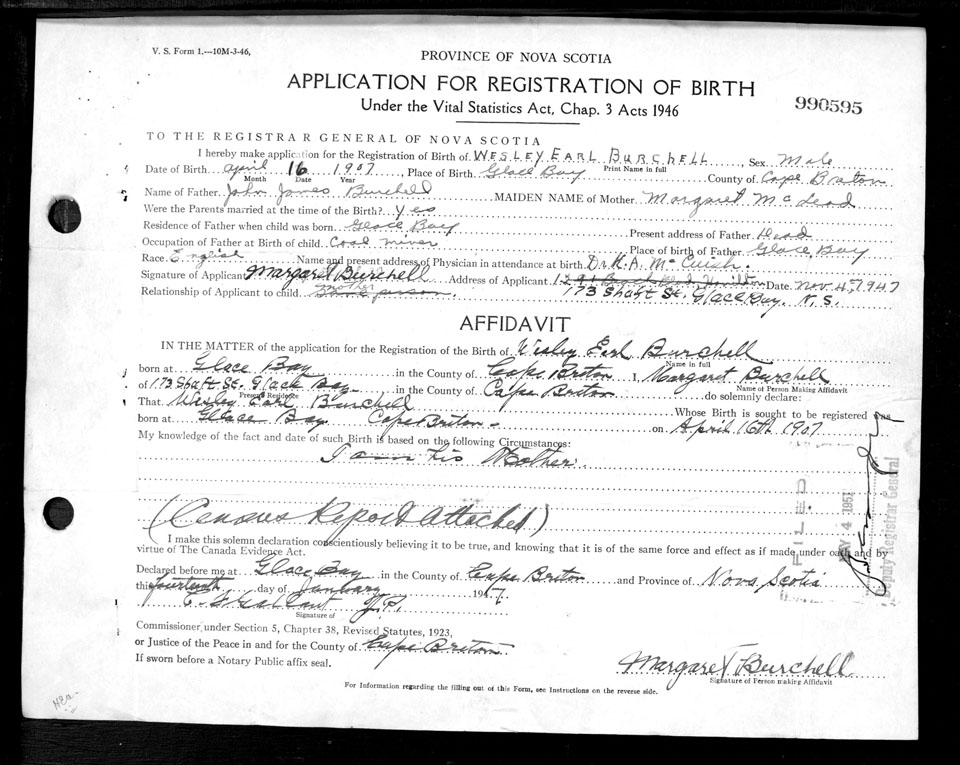 V. S. Form 1.---10M-3-46,
PROVINCE OF NOVA SCOTIA
APPLICATION FOR REGISTRATION OF BIRTH
Under the Vital Statistics Act, Chap. 3 Acts 1946
990595
TO THE REGISTRAR GENERAL OF NOVA SCOTIA
I hereby make application for the Registration of Birth of WESLEY EARL BURCHELL, Sex Male
Print Name in full
Date of Birth April 16 1907, Place of Birth Glace Bay County of Cape Breton
Month Date Year
Name of Father John James Burchell MAIDEN NAME of Mother Margaret McLeod
Were the Parents married at the time of the Birth? yes
Residence of Father when child was born Glace Bay Present address of Father Dead
Occupation of Father at Birth of child Coal miner Place of birth of Father Glace Bay
Race English Name and present address of Physician in attendance at birth Dr. K. A. McCuish.
Signature of Applicant Margaret Burchell Address of Applicant Date Nov 4, 1947
173 Shaft St. Glace Bay. N. S.
Relationship of Applicant to child Mother
AFFIDAVIT
IN THE MATTER of the application for the Registration of the Birth of Wesley Earl Burchell
Name in full
born at Glace Bay in the County of Cape Briton I, Margaret Burchell
Name of Person Making Affidavit
of 173 Shaft St. Glace Bay in the County of Cape Briton do solemnly declare:
Present Residence
That Wesley Earl Burchell Whose Birth is sought to be registered was
born at Glace Bay Cape Briton on April 16th 1907
My knowledge of the fact and date of such Birth is based on the following Circumstances:
I am his Mother.
(Census Report Attached)
I make this solemn declaration conscientiously believing it to be true, and knowing that it is of the same force and effect as if made under oath and by
virtue of The Canada Evidence Act.
Declared before me at Glace Bay in the County of Cape Briton and Province of Nova Scotia
this fourteenth day of January 1947.
J.P.
Signature of
Commissioner under Section 5, Chapter 38, Revised Statutes, 1923,
or Justice of the Peace in and for the County of Cape Breton
If sworn before a Notary Public affix seal.
Margaret Burchell
Signature of Person making Affidavit
For Information regarding the filling out of this Form, see Instructions on the reverse side.
FILED
Deputy Registrar General